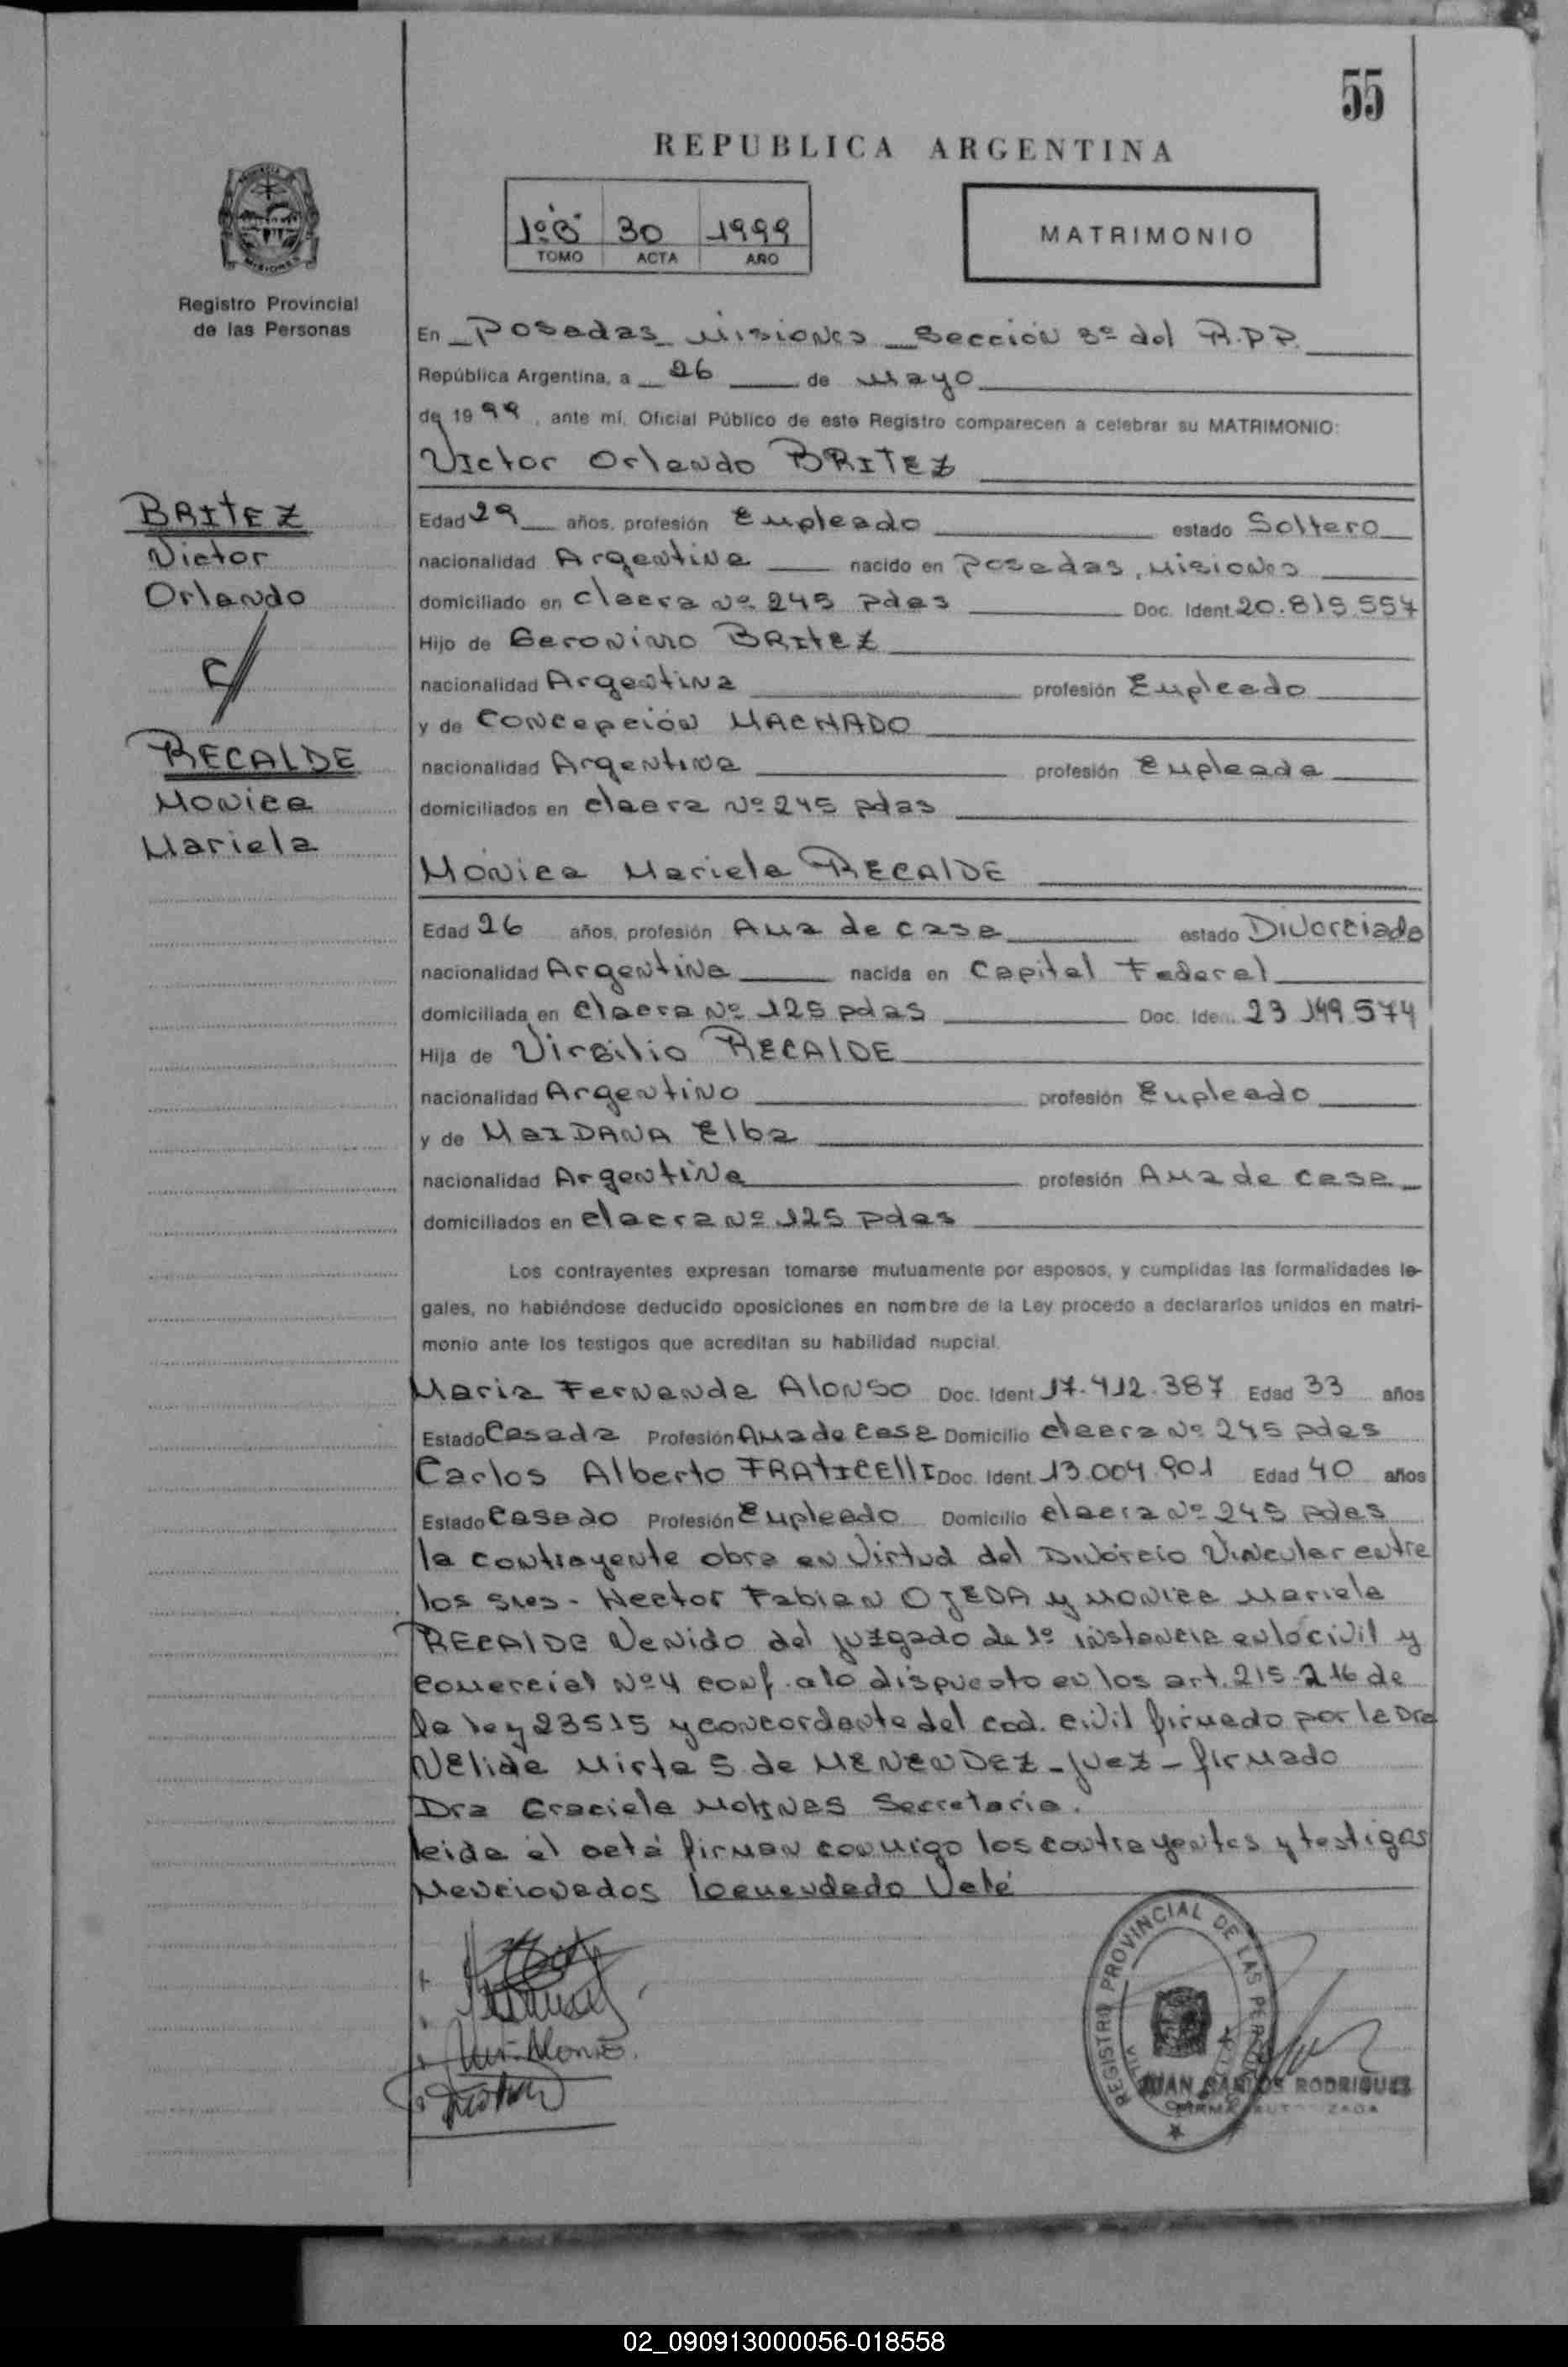 55
REPUBLICA ARGENTINA
1º B 30 1999
TOMO ACTA AÑO
MATRIMONIO
MISIONES
Registro Provincial
de las Personas
En Posadas Misiones Sección 3º del R.P.P.
República Argentina, a 26 de Mayo
de 1999, ante mí, Oficial Público de este Registro comparecen a celebrar su MATRIMONIO:
Victor Orlando BRITEZ
BRITEZ
Victor
Orlando
c/
RECALDE
Monica
Mariela
Edad 29 años, profesión Empleado estado Soltero
nacionalidad Argentina nacido en Posadas, Misiones
domiciliado en Claera Nº 245 Pdas Doc. Ident. 20.815.557
Hijo de Geronimo BRITEZ
nacionalidad Argentina profesión Empleado
y de Concepción MACHADO
nacionalidad Argentina profesión Empleada
domiciliados en Claera Nº 245 pdas
Mónica Mariela RECALDE
Edad 26 años, profesión Ama de casa estado Divorciada
nacionalidad Argentina nacida en Capital Federal
domiciliada en Claera Nº 125 pdas Doc. Iden. 23.149.574
Hija de Virgilio RECALDE
nacionalidad Argentino profesión Empleado
y de MaIDANA Elba
nacionalidad Argentina profesión Ama de casa
domiciliados en Claera Nº 125 pdas
Los contrayentes expresan tomarse mutuamente por esposos, y cumplidas las formalidades le-
gales, no habiéndose deducido oposiciones en nombre de la Ley procedo a declararlos unidos en matri-
monio ante los testigos que acreditan su habilidad nupcial.
Maria Fernanda Alonso Doc. Ident 17.412.387 Edad 33 años
Estado Casada Profesión Ama de Casa Domicilio Claera Nº 245 pdas
Carlos Alberto FRATICELLI Doc. Ident. 13.004.901 Edad 40 años
Estado Casado Profesión Empleado Domicilio Claera Nº 245 pdas
la contrayente obra en Virtud del Divorcio Vincular entre
los Sres - Hector Fabian OJEDA y Monica Mariela
RECALDE Venido del juzgado de 1º instancia en lo civil y
comercial Nº 4 conf. a lo dispuesto en los art. 215-216 de
la ley 23515 y concordante del cod. civil firmado por la Dra
Nelida Mirta S. de MENENDEZ - juez - firmado
Dra Graciela Secretaria.
leida el acta firman conmigo los contrayentes y testigos
Mencionados lo enmendado Vale
REGISTRO PROVINCIAL DE LAS
JUAN CARLOS RODRIGUEZ
FIRMA AUTORIZADA
02_090913000056-018558